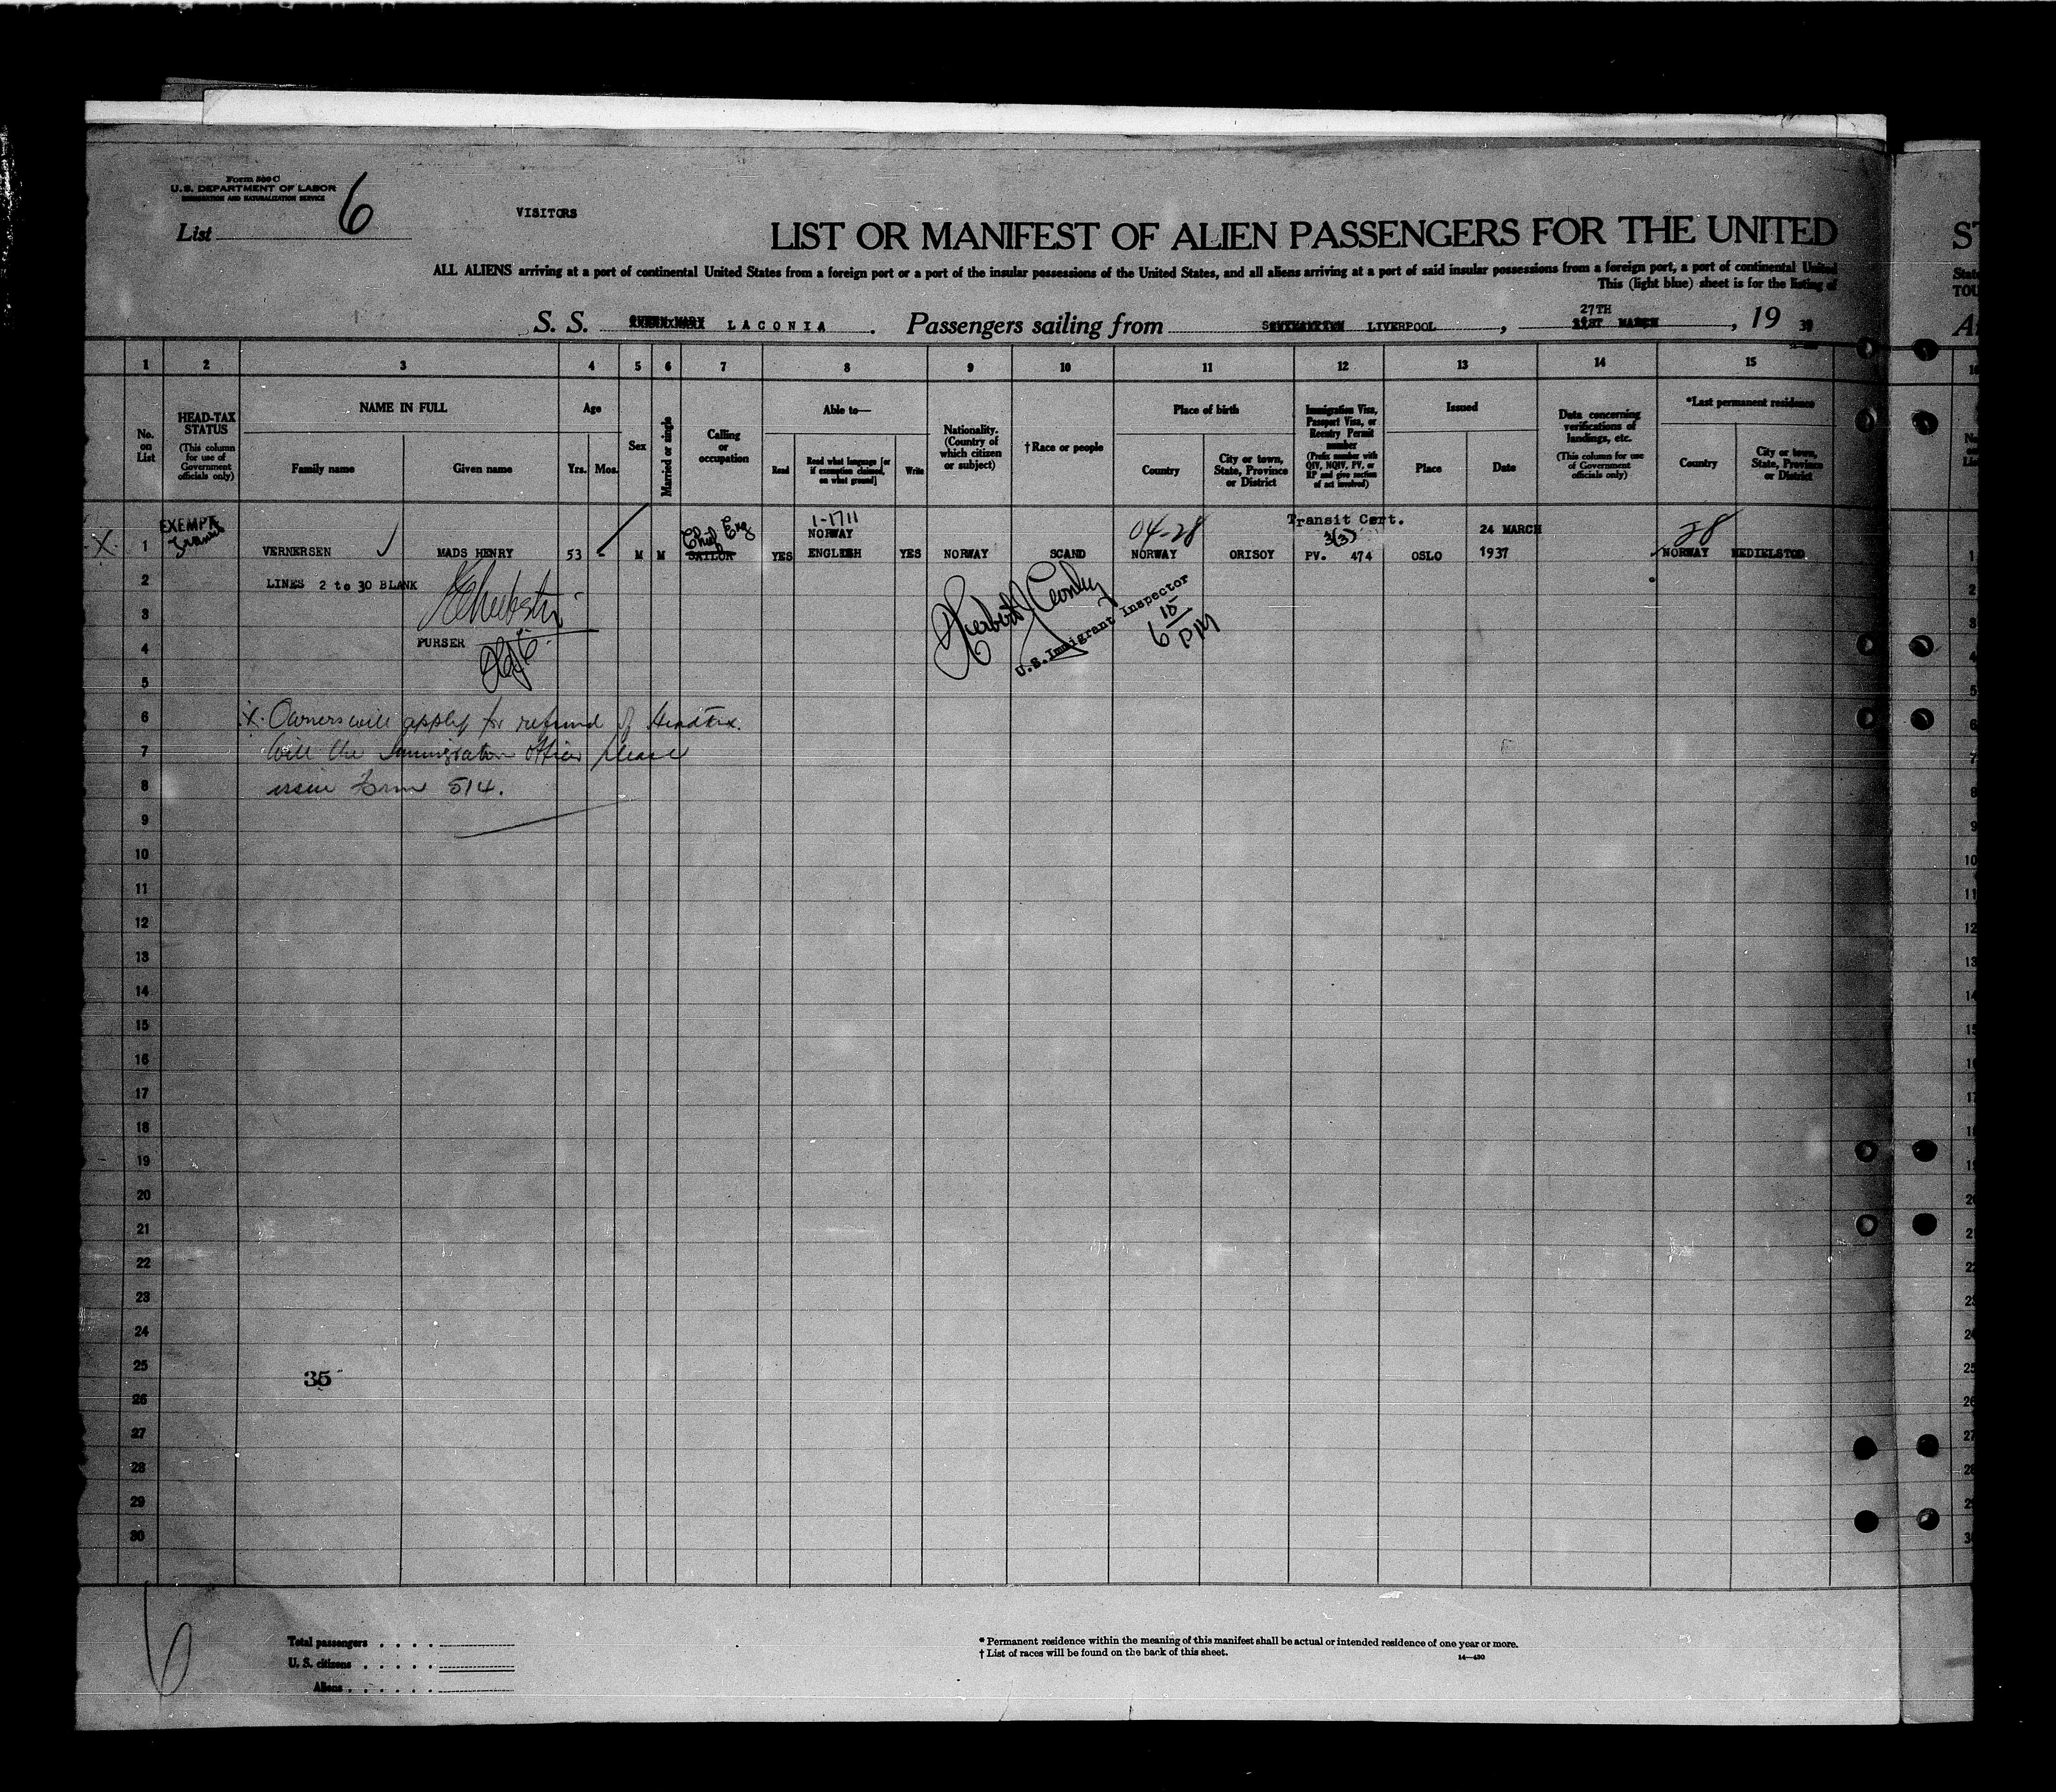 Form 500 C
U.S. DEPARTMENT OF LABOR
IMMIGRATION AND NATURALIZATION SERVICE
List 6
VISITORS
LIST OR MANIFEST OF ALIEN PASSENGERS FOR THE UNITED
ST
ALL ALIENS arriving at a port of continental United States from a foreign port or a port of the insular possessions of the United States, and all aliens arriving at a port of said insular possessions from a foreign port, a port of continental United
State
This (light blue) sheet is for the listing of
TOU
S. S. QUEEN MARY LACONIA. Passengers sailing from SOUTHAMPTON LIVERPOOL, 27TH 21ST MARCH, 19
1 2 3 4 5 6 7 8 9 10 11 12 13 14 15
No. on List
HEAD-TAX STATUS
(This column for use of Government officials only)
NAME IN FULL
Family name
Given name
Age
Yrs.
Mos.
Sex
Married or single
Calling or occupation
Able to—
Read
Read what language [or if exemption claimed, on what ground]
Write
Nationality. (Country of which citizen or subject)
†Race or people
Place of birth
Country
City or town, State, Province or District
Immigration Visa, Passport Visa, or Reentry Permit number
(Prefix number with QIV, NQIV, PV, or RP and give section of act involved)
Issued
Place
Date
Data concerning verifications of landings, etc.
(This column for use of Government officials only)
*Last permanent residence
Country
City or town, State, Province or District
EXEMPT Transit
1-1711
04-28
Transit Cert.
3(3)
24 MARCH
28
X 1 VERNERSEN MADS HENRY 53 - M M SAILOR Chief Eng YES NORWAY ENGLISH YES NORWAY SCAND NORWAY ORISOY PV. 474 OSLO 1937 NORWAY 1
2 LINES 2 to 30 BLANK 2
3 3
4 PURSER 4
Herbert J Conley
U.S. Immigrant Inspector
6 15 PM
5 5
6 X. Owners will apply for refund of Headtax. 6
7 Will the Immigration Officer please 7
8 issue Form 514. 8
9 9
10 10
11 11
12 12
13 13
14 14
15 15
16 16
17 17
18 18
19 19
20 20
21 21
22 22
23 23
24 24
25 25
35
26 26
27 27
28 28
29 29
30 30
6
Total passengers
U. S. citizens
Aliens
* Permanent residence within the meaning of this manifest shall be actual or intended residence of one year or more.
† List of races will be found on the back of this sheet.
14—430